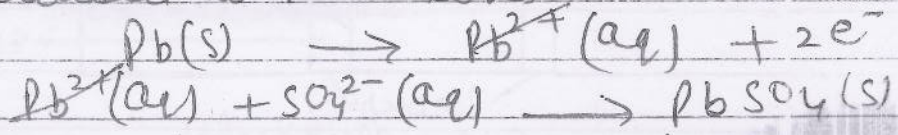 Pb(s) → Pb²⁺(aq) + 2e⁻
Pb²⁺(aq) + SO₄²⁻(aq) → PbSO₄(s)